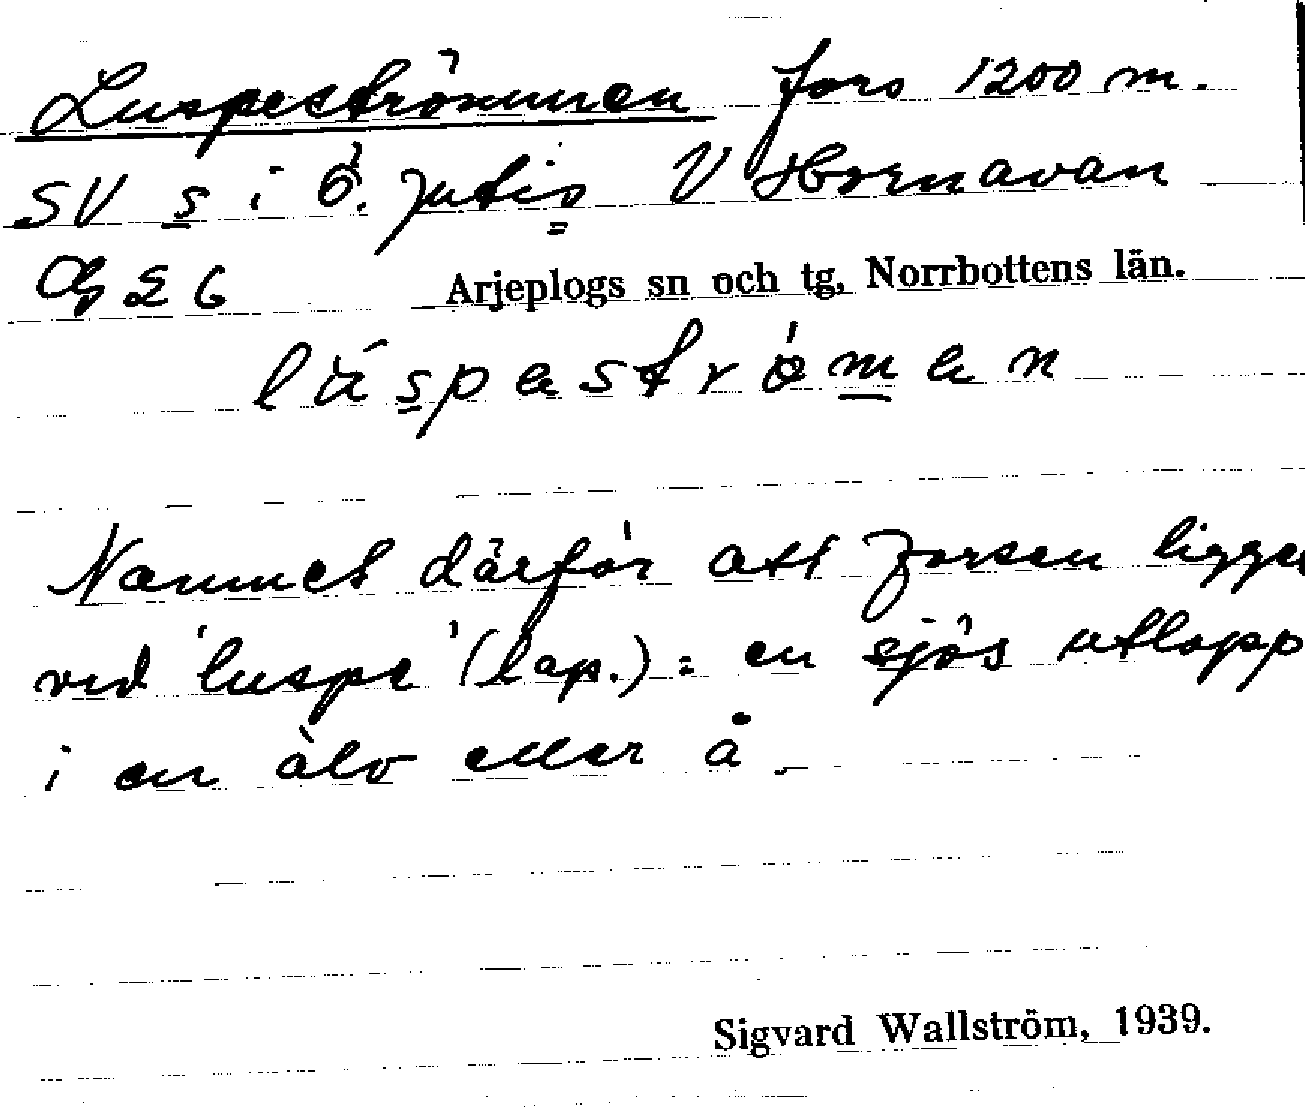 Luspeströmmen fors 1200 m.
SV s i Ö. Jutis V Hornavan
26 Arjeplogs sn och tg, Norrbottens län.
lúspeströ́men
Namnet därför att forsen ligger
vid 'luspe' (lap.) = en sjös utlopp
i en älv eller å.
Sigvard Wallström, 1939.